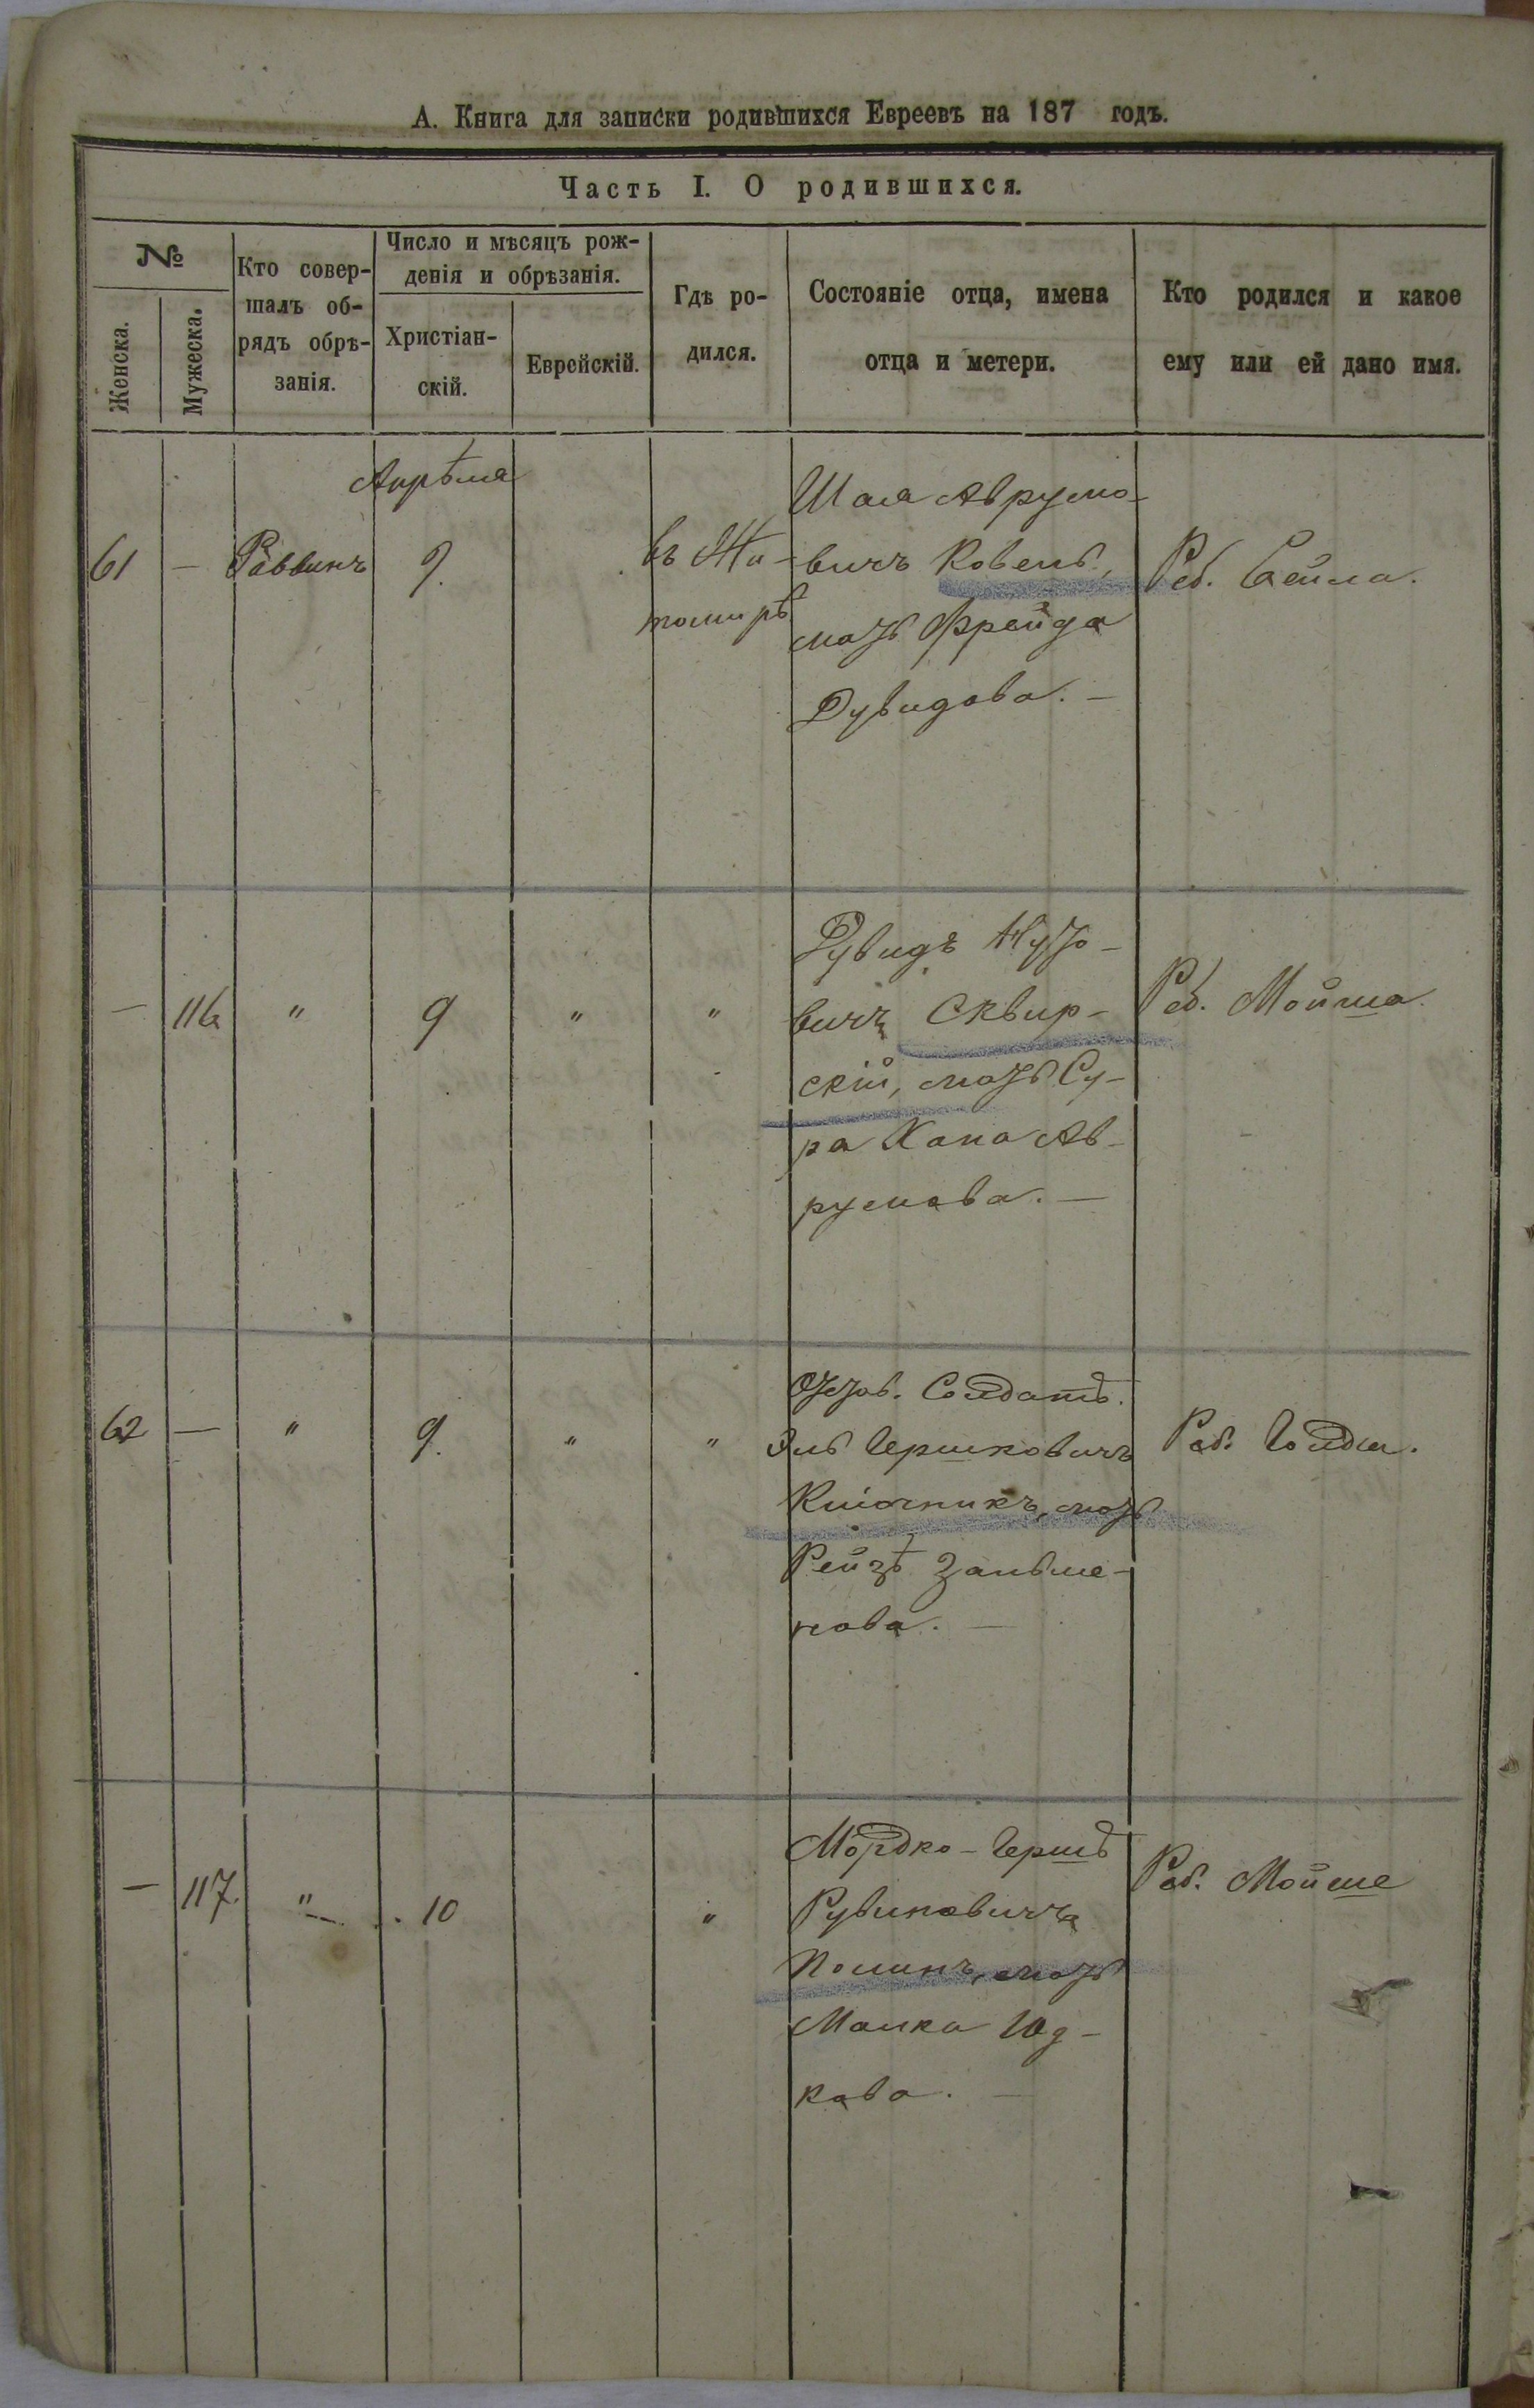 А. Книга для записки родившихся Евреевъ на 187 годъ.
Часть I. О родившихся.
№
Женска.
Мужеска.
Кто совер-
шалъ об-
рядъ обрѣ-
занія.
Число и мѣсяцъ рож-
денія и обрѣзанія.
Христіан-
скій.
Еврейскій.
Гдѣ ро-
дился.
Состояніе отца, имена
отца и метери.
Кто родился и какое
ему или ей дано имя.
Апрѣля
61 — Раввинъ 9.
въ Жи-
томирѣ
Шая Аврумо-
вичъ Ковель,
мать Фрейда
Дувидова. —
Реб. Бейла.
— 116 " 9 " "
Дувидъ Нухо-
вичъ Сквир-
скій, мать Су-
ра Хана Ав-
румова. —
Реб. Мойша
62 — " 9. " "
Солдатъ.
Эль Гершковичъ
мать
Рейзѣ
нова. —
Реб. Голда.
— 117. " 10 "
Мордко-Гершъ
Рувиновичъ
мать
Малка Юд-
кова. —
Реб. Мойше